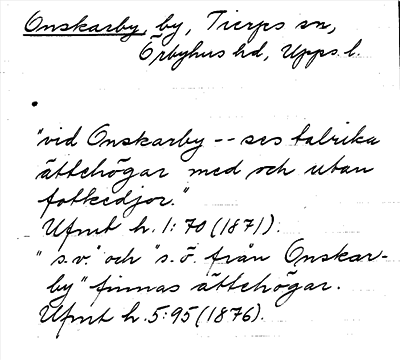 Onskarby, by, Tierps sn,
Örbyhus hd, Upps. l.
"vid Onskarby -- ses talrika
ättehögar med och utan
fotkedjor."
Ufmt h. 1:70 (1871).
"s.v." och "s.ö. från Onskar-
by" finnas ättehögar.
Ufmt h. 5:95 (1876).